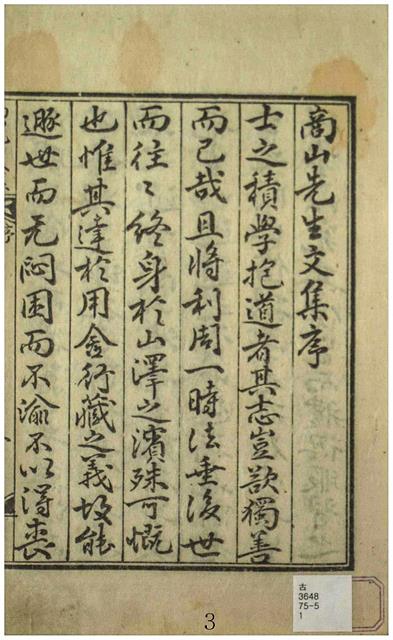 商山先生文集序
士之積學抱道者其志豈欲獨善
而已哉且將利周一時法垂後世
而往〻終身於山澤之濱殊可慨
也惟其達於用舍行藏之義故能
遯世而无悶困而不渝不以得喪
古
3648
75-5
1
3